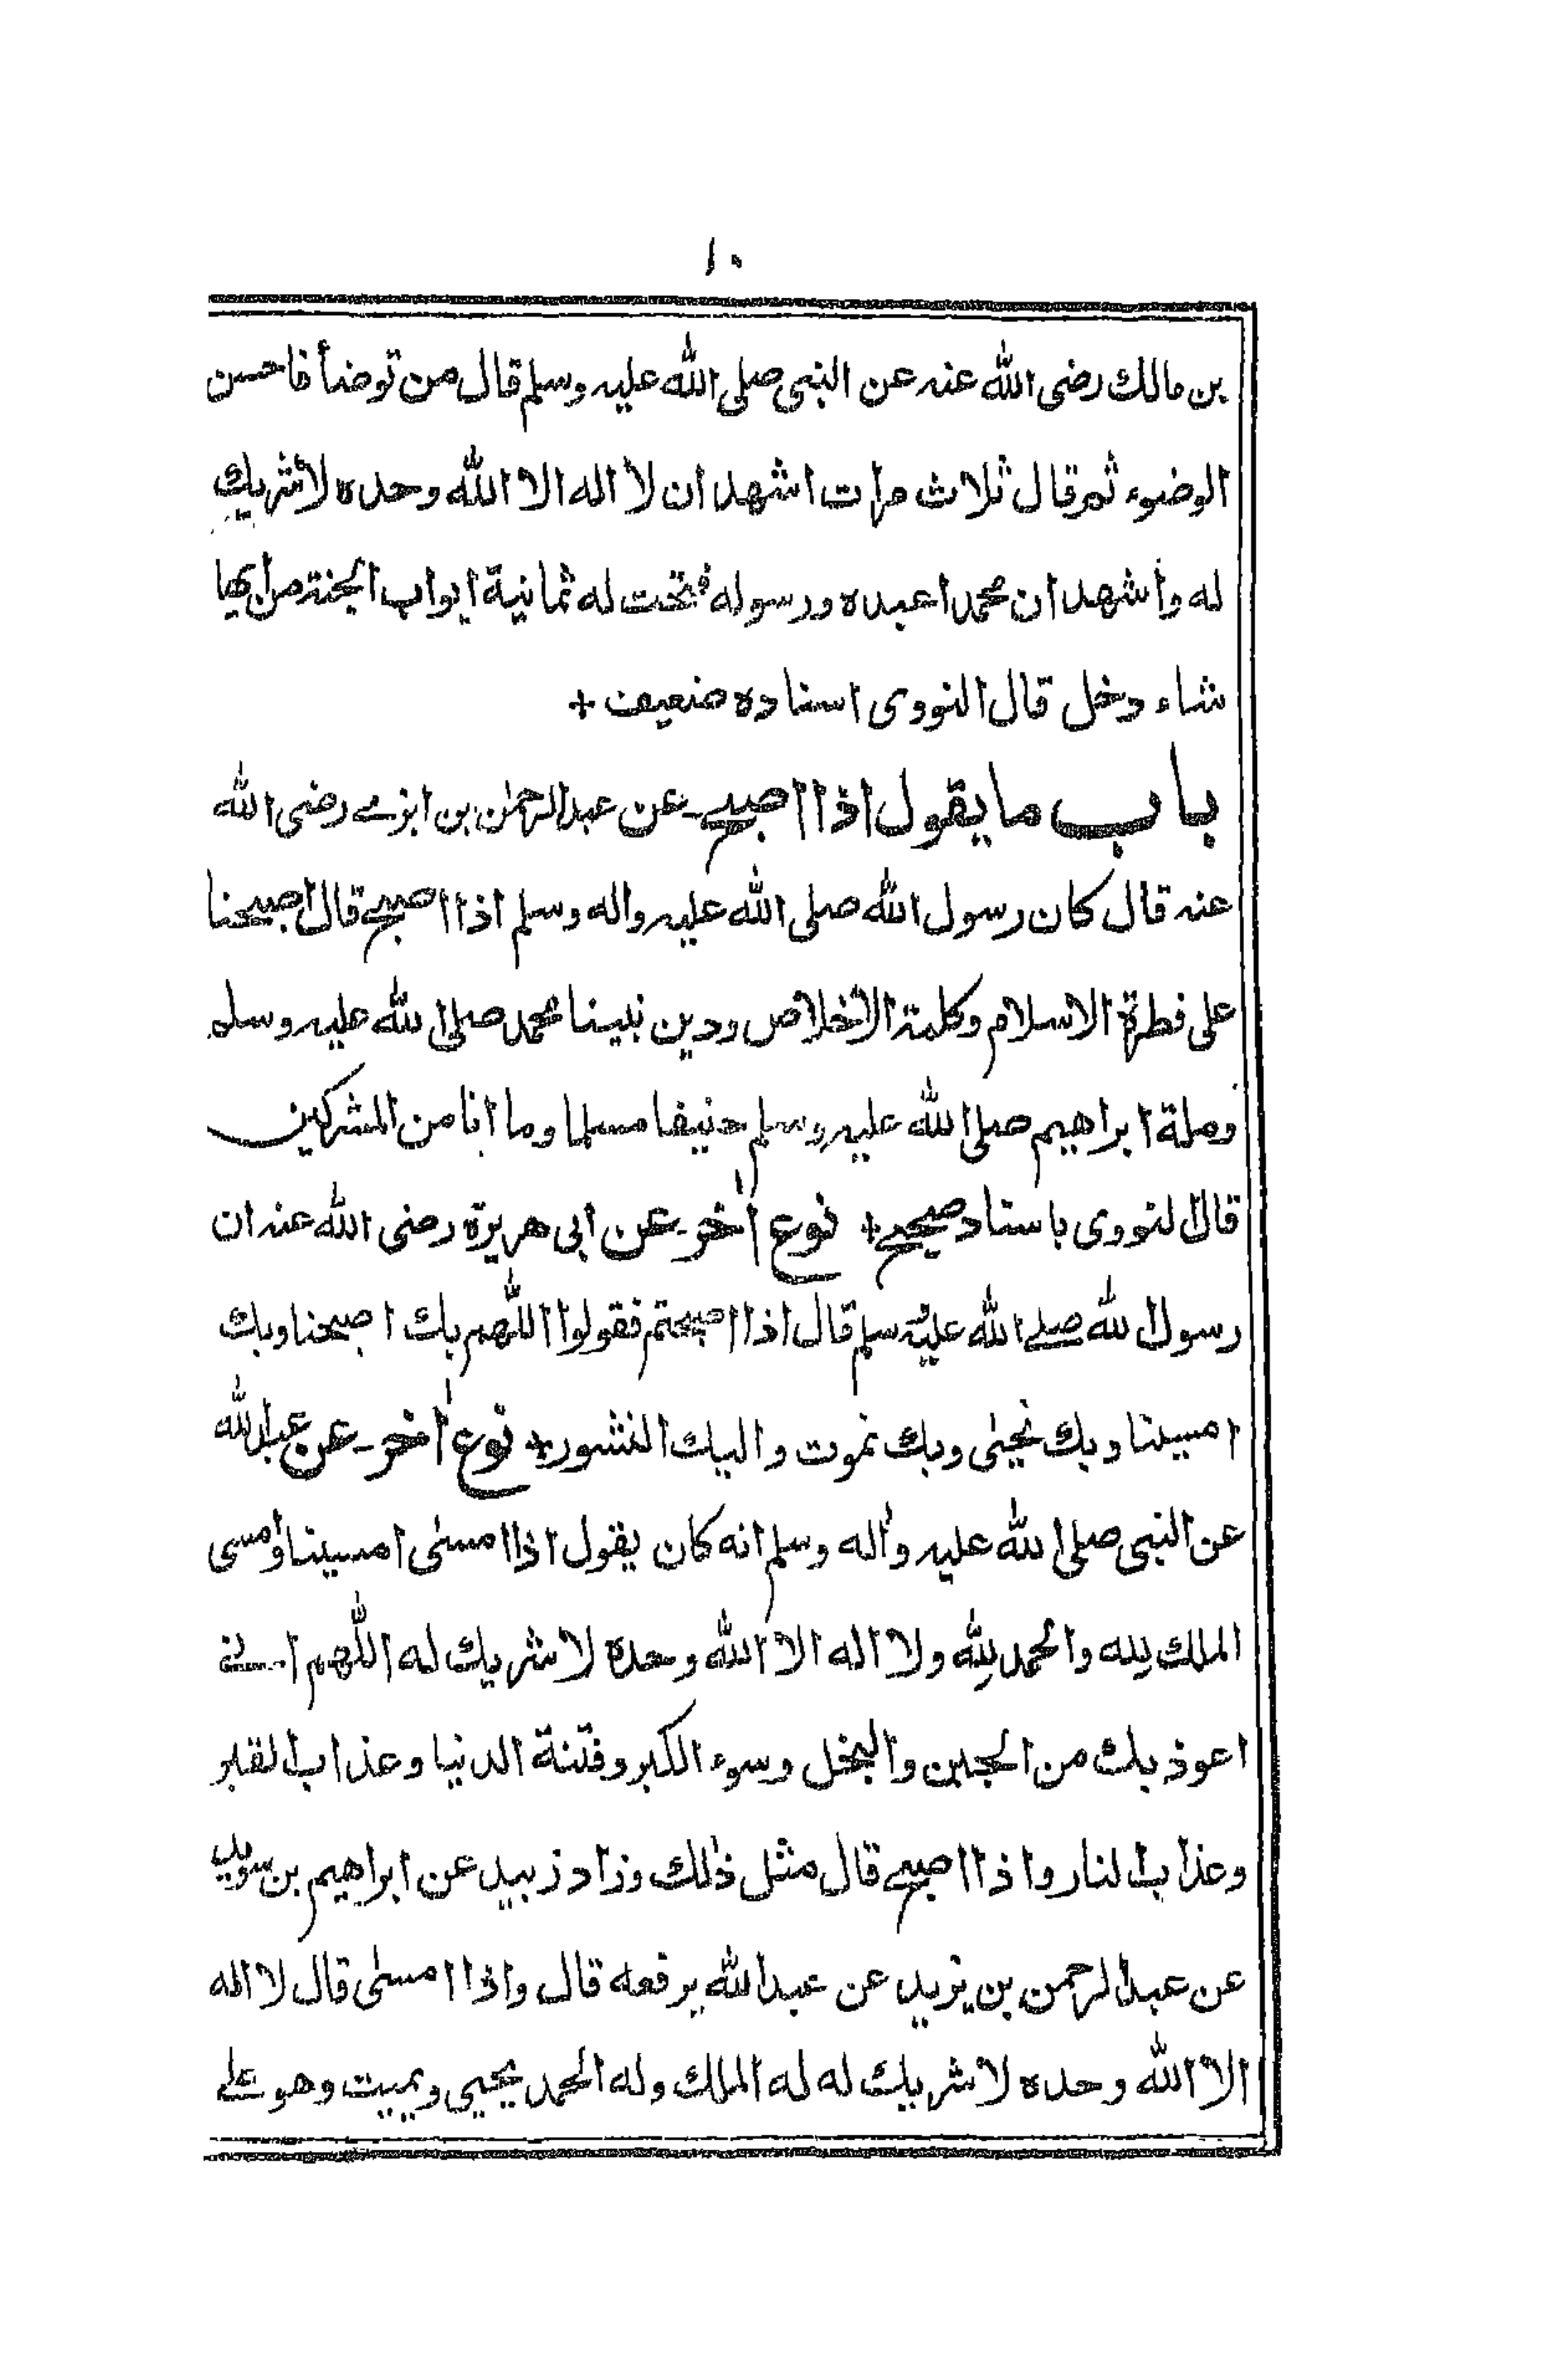 ١٠
بن مالك رضى الله عنه عن النبى صلى الله عليه وسلم قال من توضأ فاحسن
الوضوء ثم قال ثلاث مرات اشهد ان لا اله الا الله وحده لا شريك
له وأشهد ان محمدا عبده ورسوله فتحت له ثمانية ابواب الجنة من ايها
شاء دخل قال النووى اسناده ضعيف +
باب ما يقول اذا اصبح ـ عن عبد الرحمٰن بن ابزے رضى الله
عنه قال كان رسول الله صلى الله عليه واله وسلم اذا اصبح قال اصبحنا
على فطرة الاسلام وكلمة الاخلاص ودين نبينا محمد صلى الله عليه وسلم
وملة ابراهيم صلى الله عليه وسلم حنيفا مسلما وما انا من المشركين
قال النووى باسناد صحيح + نوع اٰخر ـ عن ابى هريرة رضى الله عنه ان
رسول الله صلے الله عليه وسلم قال اذا اصبحتم فقولوا اللّٰهم بك اصبحنا وبك
امسينا وبك نحيىٰ وبك نموت واليك النشور + نوع اٰخر ـ عن عبد الله
عن النبى صلى الله عليه واٰله وسلم انه كان يقول اذا امسىٰ امسينا وامسى
الملك لله والحمد لله ولا اله الا الله وحده لا شريك له اللّٰهم انے
اعوذ بك من الجبن والبخل وسوء الكبر وفتنة الدنيا وعذاب القبر
وعذاب النار واذا اصبح قال مثل ذٰلك وزاد زبيد عن ابراهيم بن سويد
عن عبد الرحمن بن يزيد عن عبد الله يرفعه قال واذا امسىٰ قال لا اله
الا الله وحده لا شريك له له الملك وله الحمد يحيى ويميت وهو علے